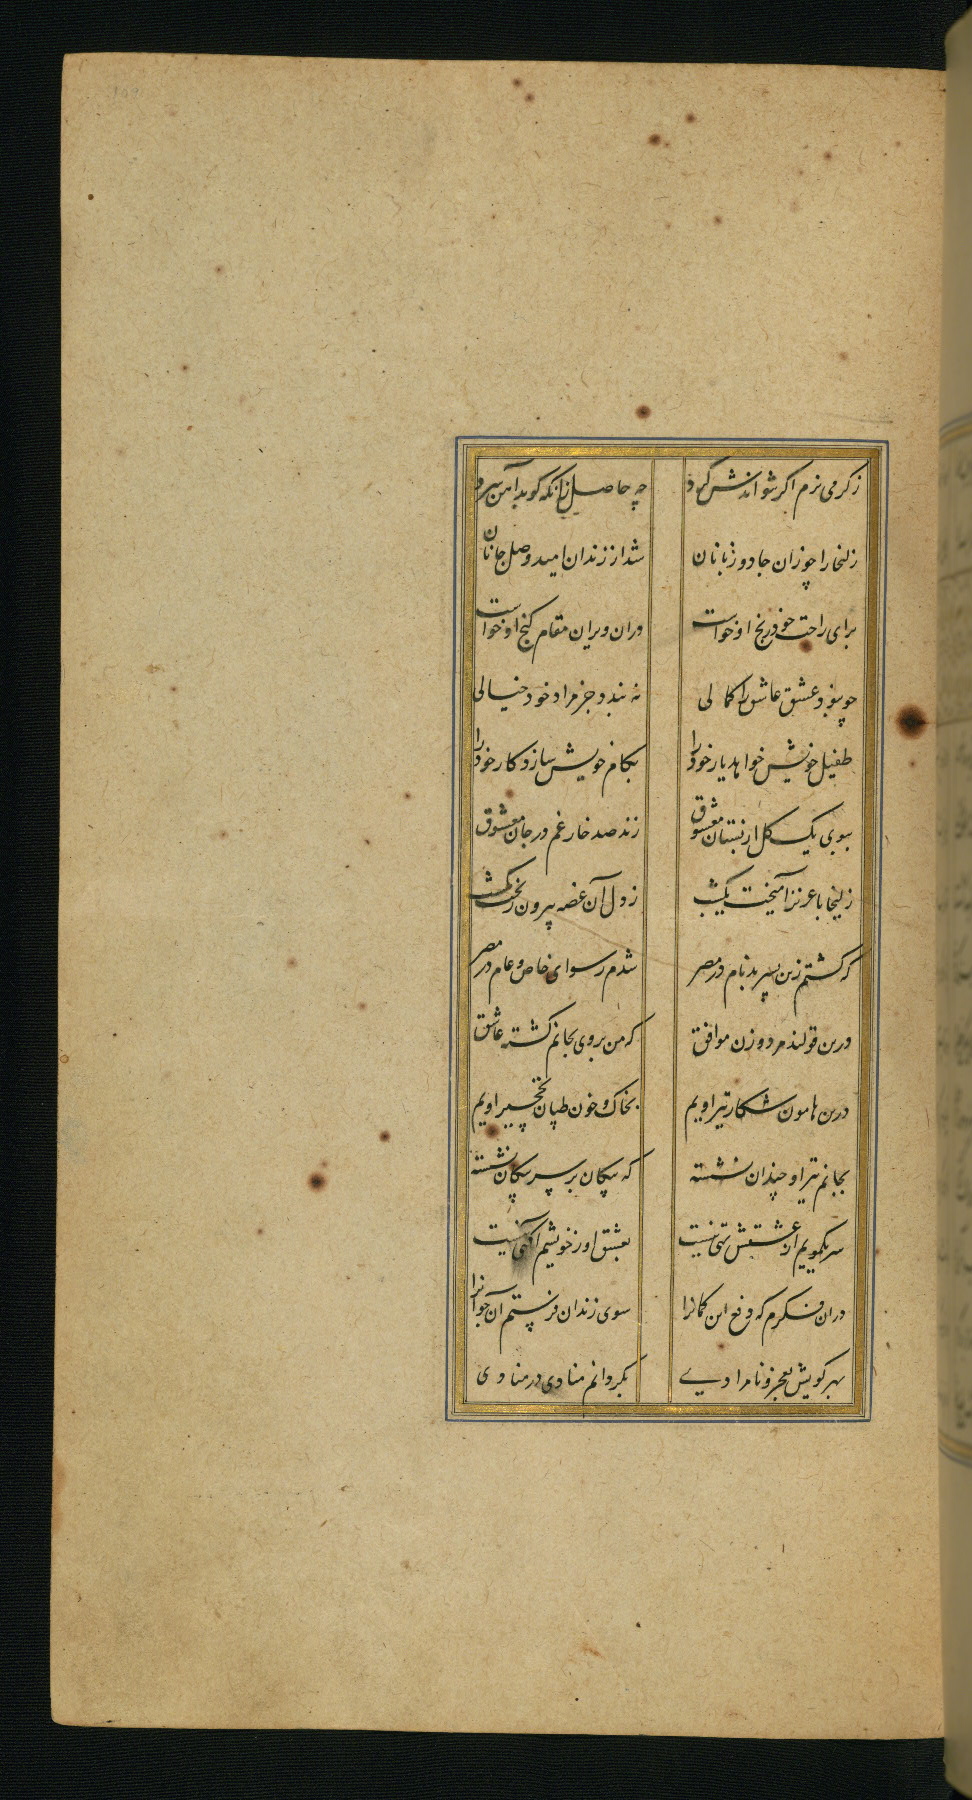 ز گرمی نرم اگر نتواندش کرد چه حاصل زانکه کوبد آهن سرد
زلیخا را چو زان جادو زبانان شد از زندان امید وصل جانان
برای راحت خود رنج او خواست دران ویران مقام گنج او خواست
چو نبود عشق عاشق را کمالی نه بندد جز مراد خود خیالی
طفیل خویش خواهد یار خود را بکام خویش سازد کار خود را
ببوی یک گل از بستان معشوق زند صد خار غم در جان معشوق
زلیخا با عزیز آمیخت یکشب ز دل آن غصه بیرون ریخت یکشب
که گشتم زین پسر بدنام در مصر شدم رسوای خاص و عام در مصر
درین قولند مرد و زن موافق که من بروی بجانم گشته عاشق
درین هامون شکار تیر اویم بخاک و خون طپان نخچیر اویم
بجانم تیر او چندان نشسته که پیکان بر سر پیکان نشسته
سر یکمویم از عشقش تهی نیست بعشق او ز خویشم آگهی نیست
دران فکرم که دفع این گمانرا سوی زندان فرستم آن جوانرا
بهر کویش بعجز و نامرادی بگردانم منادی در منادی